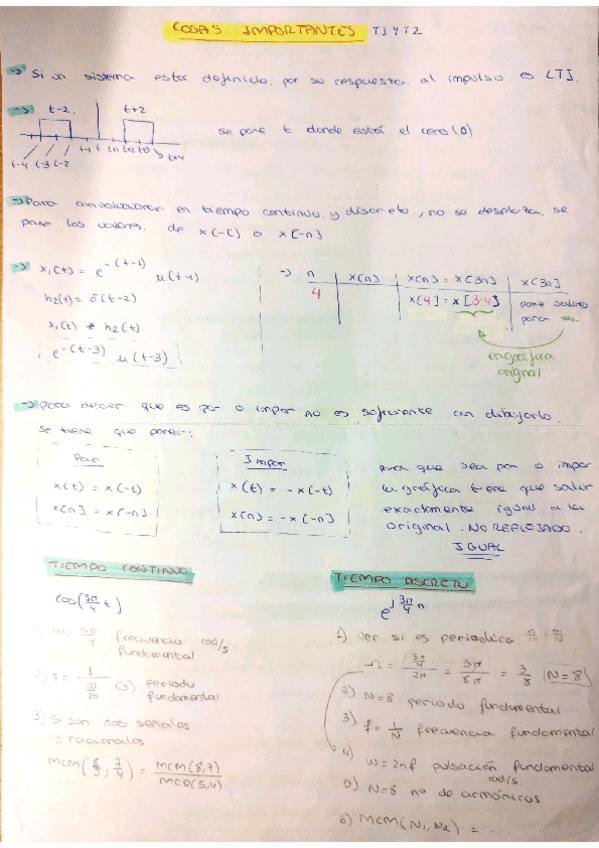 COSAS IMPORTANTES T1 Y T2
-> Si un sistema estar definido por su respuesta al impulso es LTI.
-> t-2 t+2
se pone t donde está el cero (0)
t-4 t-3 t-2 t-1 t t+1 t+2 t+3 t+4
-> Para convolucionar en tiempo continuo y discreto, no se desplaza, se
pone los valores de x(-t) o x[-n]
-> x₁(t) = e^-(t-1) u(t-1)
h₂(t) = δ(t-2)
x₁(t) * h₂(t)
e^-(t-3) u(t-3)
-> n x[n] x[n] = x[3n] x[3n]
4 x[4] = x[3·4] pone valores
para
en gráfica
original
-> Para decir que es par o impar no es suficiente con dibujarlo,
se tiene que poner:
Par
x(t) = x(-t)
x[n] = x[-n]
Impar
x(t) = -x(-t)
x[n] = -x[-n]
para que sea par o impar
la gráfica tiene que salir
exactamente igual a la
original. NO REFLEJADO.
IGUAL
TIEMPO CONTINUO
cos(3π/4 t)
1) ω = 3π/4 frecuencia rad/s
fundamental
2) T = 1/(ω/2π) (s) periodo
fundamental
3) Si son dos señales
y racionales
MCM(8/5, 7/4) = MCM(8,7)/MCD(5,4)
TIEMPO DISCRETO
e^j 3π/4 n
1) Ver si es periodica
Ω = (3π/4)/2π = 3π/8π = 3/8 N=8
2) N=8 periodo fundamental
3) f = 1/N frecuencia fundamental
4) ω = 2πf pulsación fundamental
rad/s
5) N=8 nº de armónicos
6) MCM(N₁, N₂) = ...